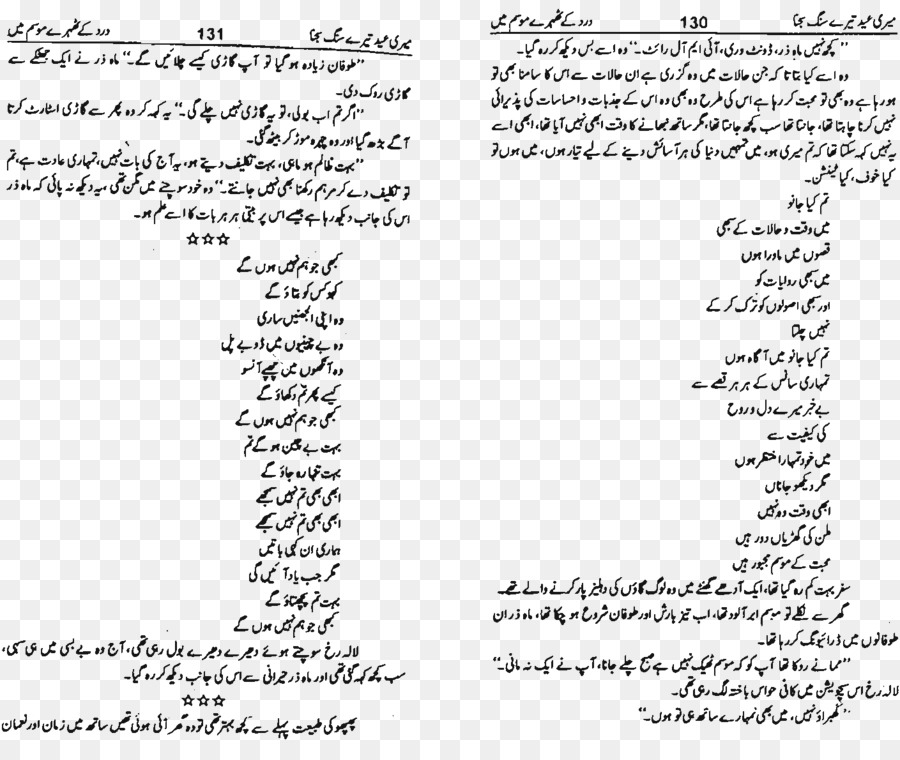 میری عید تیرے سنگ سجنا 130 درد کے ٹھہرے موسم میں
”کچھ نہیں ماہ ذر، ڈونٹ وری، آئی ایم آل رائٹ۔“ وہ اسے بس دیکھ کر رہ گیا۔
وہ اسے کیا بتاتا کہ جن حالات میں وہ گزری ہے ان حالات سے اس کا سامنا بھی تو
ہو رہا ہے وہ بھی تو محبت کر رہا ہے اس کی طرح وہ بھی وہ اس کے جذبات و احساسات کی پذیرائی
نہیں کرنا چاہتا تھا، جانتا تھا سب کچھ جانتا تھا، مگر ساتھ نبھانے کا وقت ابھی نہیں آیا تھا، ابھی اسے
یہ نہیں کہہ سکتا تھا کہ تم میری ہو، میں تمہیں دنیا کی ہر آسائش دینے کے لیے تیار ہوں، میں ہوں تو
کیا خوف، کیا ٹینشن۔
تم کیا جانو
میں وقت و حالات کے سبھی
قصوں میں ماورا ہوں
میں سبھی روایات کو
اور سبھی اصولوں کو ترک کر کے
نہیں چلتا
تم کیا جانو میں آگاہ ہوں
تمہاری سانس کے ہر ہر قصے سے
بے خبر میرے دل و روح
کی کیفیت سے
میں خود تمہارا منتظر ہوں
مگر دیکھو جاناں
ابھی وقت وہ نہیں
ملن کی گھڑیاں دور ہیں
محبت کے موسم مجبور ہیں
سفر بہت کم رہ گیا تھا، ایک آدھے گھنٹے میں وہ لوگ گاؤں کی دہلیز پار کرنے والے تھے۔
گھر سے نکلے تو موسم ابر آلود تھا، اب تیز بارش اور طوفان شروع ہو چکا تھا، ماہ ذر ان
طوفانوں میں ڈرائیونگ کر رہا تھا۔
”مما نے روکا تھا آپ کو کہ موسم ٹھیک نہیں ہے صبح چلے جانا، آپ نے ایک نہ مانی۔“
لالہ رخ اس سچویشن میں کافی حواس باختہ لگ رہی تھی۔
”گھبراؤ نہیں، میں بھی تمہارے ساتھ ہی تو ہوں۔“
میری عید تیرے سنگ سجنا 131 درد کے ٹھہرے موسم میں
”طوفان زیادہ ہو گیا تو آپ گاڑی کیسے چلائیں گے۔“ ماہ ذر نے ایک جھٹکے سے
گاڑی روک دی۔
”اگر تم اب بولی، تو یہ گاڑی نہیں چلے گی۔“ یہ کہہ کر وہ پھر سے گاڑی اسٹارٹ کرتا
آگے بڑھ گیا اور وہ چہرہ موڑ کر بیٹھ گئی۔
”بہت ظالم ہو ماہی، بہت تکلیف دیتے ہو، یہ آج کی بات نہیں، تمہاری عادت ہے، تم
تو تکلیف دے کر مرہم رکھنا بھی نہیں جانتے۔“ وہ خود سوچنے میں مگن تھی، یہ دیکھ نہ پائی کہ ماہ ذر
اس کی جانب دیکھ رہا ہے جیسے اس پر بیتی ہر ہر بات کا اسے علم ہو۔
☆☆☆
کبھی جو ہم نہیں ہوں گے
کہو کس کو بتاؤ گے
وہ اپنی الجھنیں ساری
وہ بے چینیوں میں ڈوبے پل
وہ آنکھوں میں چھپے آنسو
کیسے پھر تم دکھاؤ گے
کبھی جو ہم نہیں ہوں گے
بہت بے چین ہو گے تم
بہت تنہا رہ جاؤ گے
ابھی بھی تم نہیں سمجھے
ابھی بھی تم نہیں سمجھے
ہماری ان کہی باتیں
مگر جب یاد آئیں گی
بہت تم پچھتاؤ گے
کبھی جو ہم نہیں ہوں گے
لالہ رخ سوچتے ہوئے دھیرے دھیرے بول رہی تھی، آج وہ بے بسی میں ہی سہی،
سب کچھ کہہ گئی تھی اور ماہ ذر حیرانی سے اس کی جانب دیکھ کر رہ گیا۔
☆☆☆
پھپھو کی طبیعت پہلے سے کچھ بہتر تھی تو وہ گھر آئی ہوئی تھیں ساتھ میں زمان اور نعمان